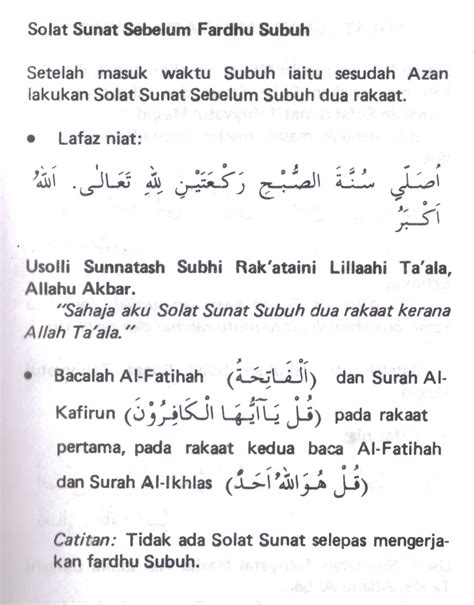 Solat Sunat Sebelum Fardhu Subuh
Setelah masuk waktu Subuh iaitu sesudah Azan
lakukan Solat Sunat Sebelum Subuh dua rakaat.
• Lafaz niat:
اُصَلِّي سُنَّةَ الصُّبْحِ رَكْعَتَيْنِ لِلّٰهِ تَعَالٰى. اَللهُ
اَكْبَرُ
Usolli Sunnatash Subhi Rak'ataini Lillaahi Ta'ala,
Allahu Akbar.
"Sahaja aku Solat Sunat Subuh dua rakaat kerana
Allah Ta'ala."
• Bacalah Al-Fatihah (اَلْفَاتِحَةُ) dan Surah Al-
Kafirun (قُلْ يَآاَيُّهَا الْكَافِرُوْنَ) pada rakaat
pertama, pada rakaat kedua baca Al-Fatihah
dan Surah Al-Ikhlas (قُلْ هُوَ اللهُ اَحَدٌ)
Catitan: Tidak ada Solat Sunat selepas mengerja-
kan fardhu Subuh.